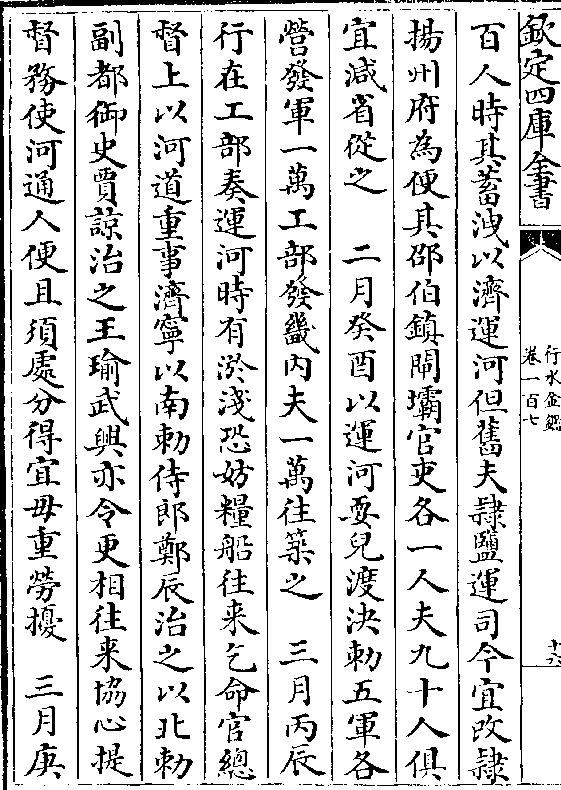 欽定四庫全書
行水金鑑
卷一百七
十六
百人時其蓄洩以濟運河但舊夫隷鹽運司今宜改隷
揚州府為便其邵伯鎮閘壩官吏各一人夫九十人俱
宜減省從之　二月癸酉以運河耍兒渡決勅五軍各
營發軍一萬工部發畿内夫一萬往築之　三月丙辰
行在工部奏運河時有淤淺恐妨糧船往来乞命官總
督上以河道重事濟寧以南勅侍郎鄭辰治之以北勅
副都御史賈諒治之王瑜武興亦令更相往来協心提
督務使河通人便且須處分得宜毋重勞擾　三月庚